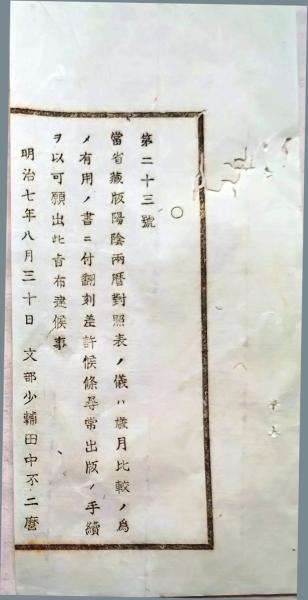 第二十三號
○
當省藏版陽陰兩暦對照表ノ儀ハ歳月比較ノ爲
メ有用ノ書ニ付翻刻差許候條尋常出版ノ手續
ヲ以可願出此旨布達候事
明治七年八月三十日 文部少輔田中不二麿